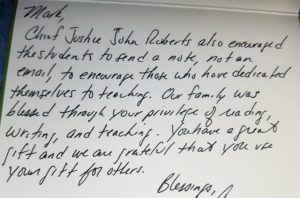 Mark,
Chief Justice John Roberts also encouraged
the students to send a note, not an
email, to encourage those who have dedicated
themselves to teaching. Our family was
blessed through your privilege of reading,
writing, and teaching. You have a great
gift and we are grateful that you use
your gift for others.
Blessings,